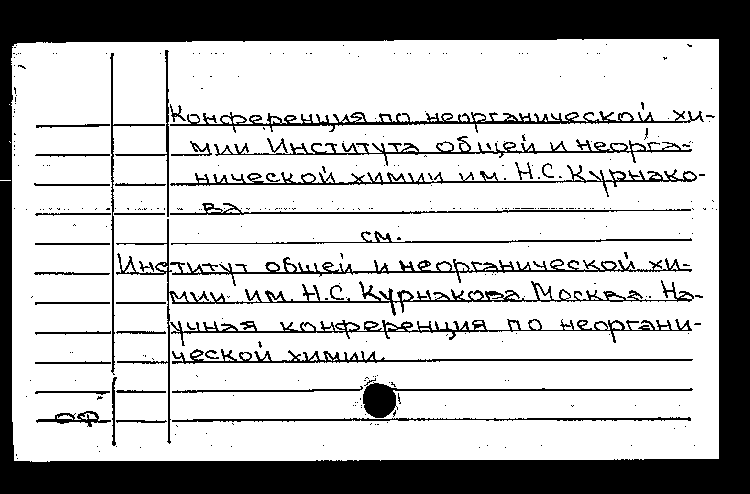 Конференция по неорганической хи-
мии Института общей и неорга-
нической химии им. Н.С. Курнако-
ва
см.
Институт общей и неорганической хи-
мии им. Н.С. Курнакова. Москва. На-
учная конференция по неоргани-
ческой химии.
оф